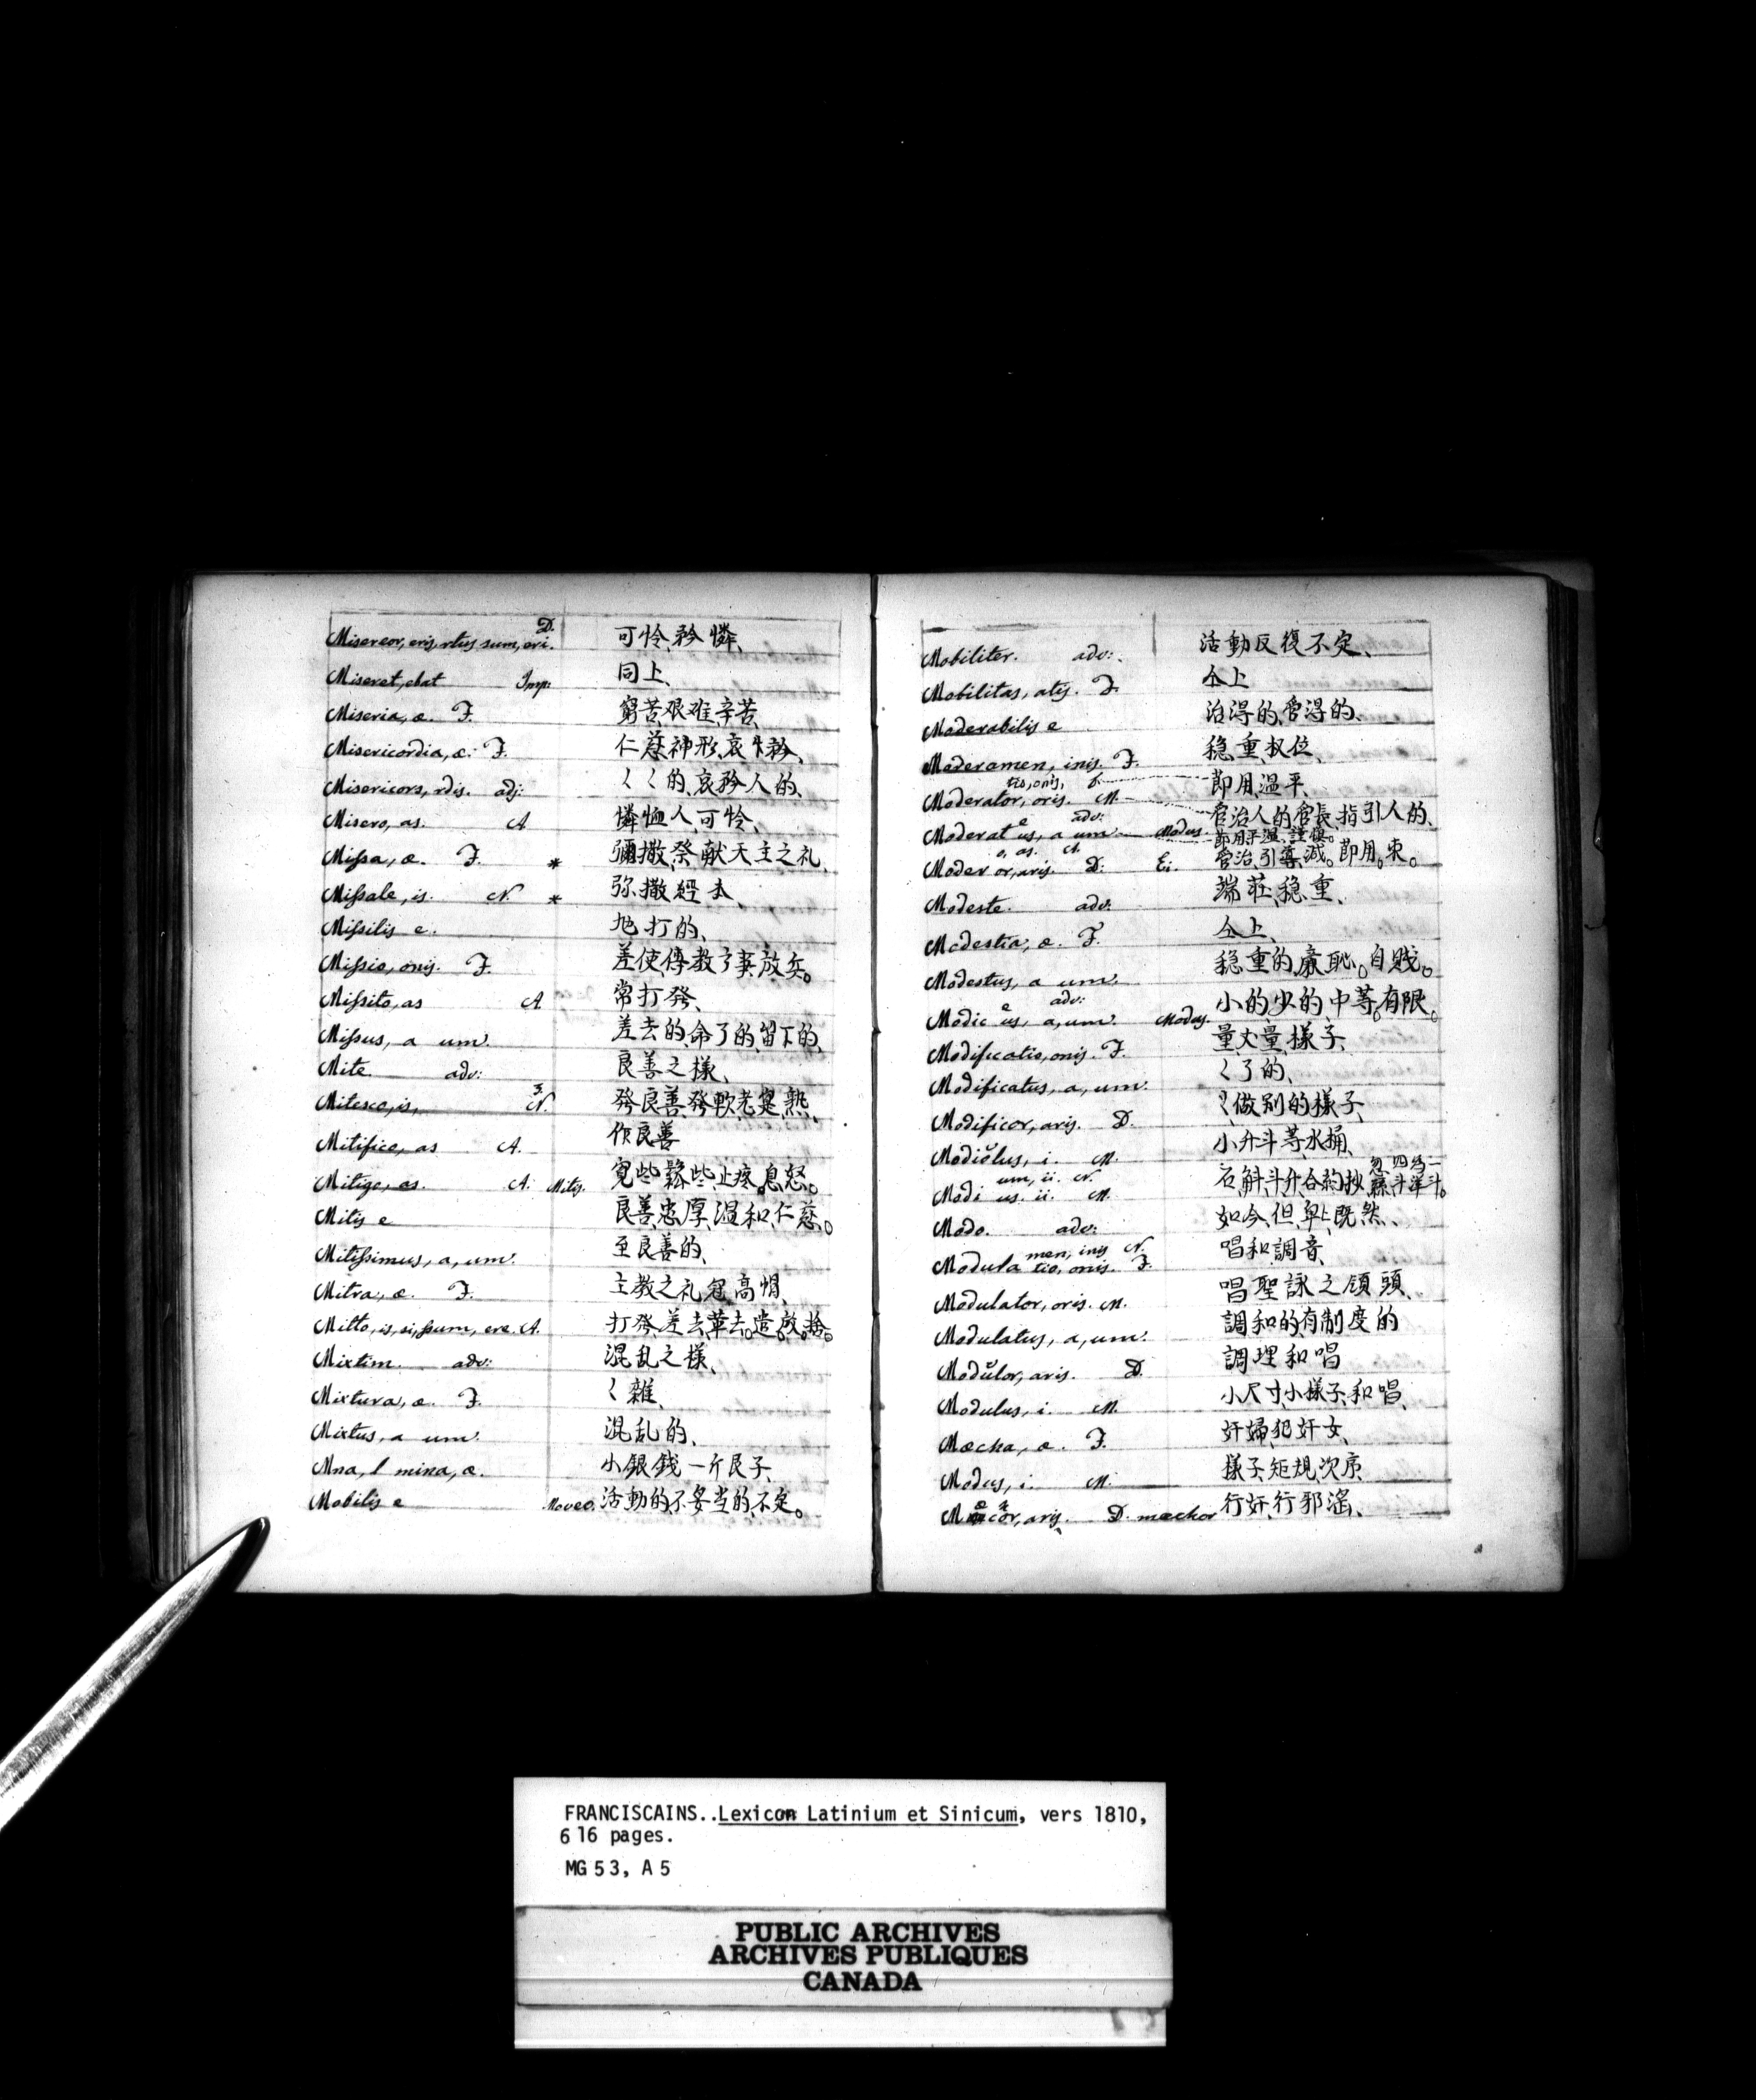 Misereor, eris, rtus sum, eri. D. 可怜、矜憐、
Miseret, ebat Imp: 同上、
Miseria, æ. F. 窮苦艰难、辛苦、
Misericordia, æ: F. 仁慈、神形、哀矜、
Misericors, rdis. adj: 〱〱的、哀矜人的、
Misero, as. A 憐恤人、可怜、
Missa, æ. F. * 彌撒、祭献天主之礼、
Missale, is. N. * 弥撒經本、
Missilis e. 打的、
Missio, onis. F. 差使、傳教、了事、放兵。
Missito, as A 常打発、
Missus, a um. 差去的、命了的、留下的、
Mite. adv: 良善之樣、
Mitesco, is, 3 N. 発良善、発軟、老寔、熟、
Mitifico, as A. 作良善
Mitigo, as. A. Mitis. 寬些、鬆些、止疼。息怒。
Mitis e 良善、忠厚、溫和、仁慈。
Mitissimus, a, um. 至良善的、
Mitra, æ. F. 主教之礼冠、高帽、
Mitto, is, si, ssum, ere. A. 打発、差去、革去。造。放。捨。
Mixtim. adv: 混乱之樣、
Mixtura, æ. F. 〱雜、
Mixtus, a um. 混乱的、
Mna, l mina, æ. 小銀錢、一斤艮子、
Mobilis e Moveo. 活動的、不妥当的、不定。
Mobiliter. adv:. 活動反復不定、
Mobilitas, atis. F. 仝上
Moderabilis e 治淂的、管淂的、
Moderamen, inis. F. 稳重、权位、
tio, onis, f. 節用、溫平、
Moderator, oris. M. 管治人的、官長、指引人的、
Moderat e adv: us, a um. Modus. 節用、平溫、謹慎。
Moder o, as. A. or, aris. D. Ei. 管治、引導、減。節用。束。
Modeste. adv: 端莊、稳重、
Modestia, æ. F. 仝上、
Modestus, a um. 稳重的、廉恥。自贱。
Modic e adv: us, a, um. Modus. 小的、少的、中等。有限。
Modificatio, onis. F. 量、丈量、樣子、
Modificatus, a, um. 〱了的、
Modificor, aris. D. 〱做别的樣子、
Modiŏlus, i. M. 小升斗等、水桶、
Modi um, ii. N. us. ii. M. 石斛斗升合
Modo. adv: 如今、但、既然、
Modula men, inis N. tio, onis. F. 唱和、調音、
Modulator, oris. M. 唱聖詠之頭、
Modulatus, a, um. 調和的、有制度的
Modŭlor, aris. D. 調理和唱
Modulus, i. M. 小尺寸、小樣子、和唱、
Mæcha, æ. F. 奸婦、犯奸女、
Modus, i. M. 樣子、矩規、次序
Mæcor, aris. D. mæchor 行奸、行邪滛、
FRANCISCAINS..Lexicon Latinium et Sinicum, vers 1810,
616 pages.
MG 53, A 5
PUBLIC ARCHIVES
ARCHIVES PUBLIQUES
CANADA